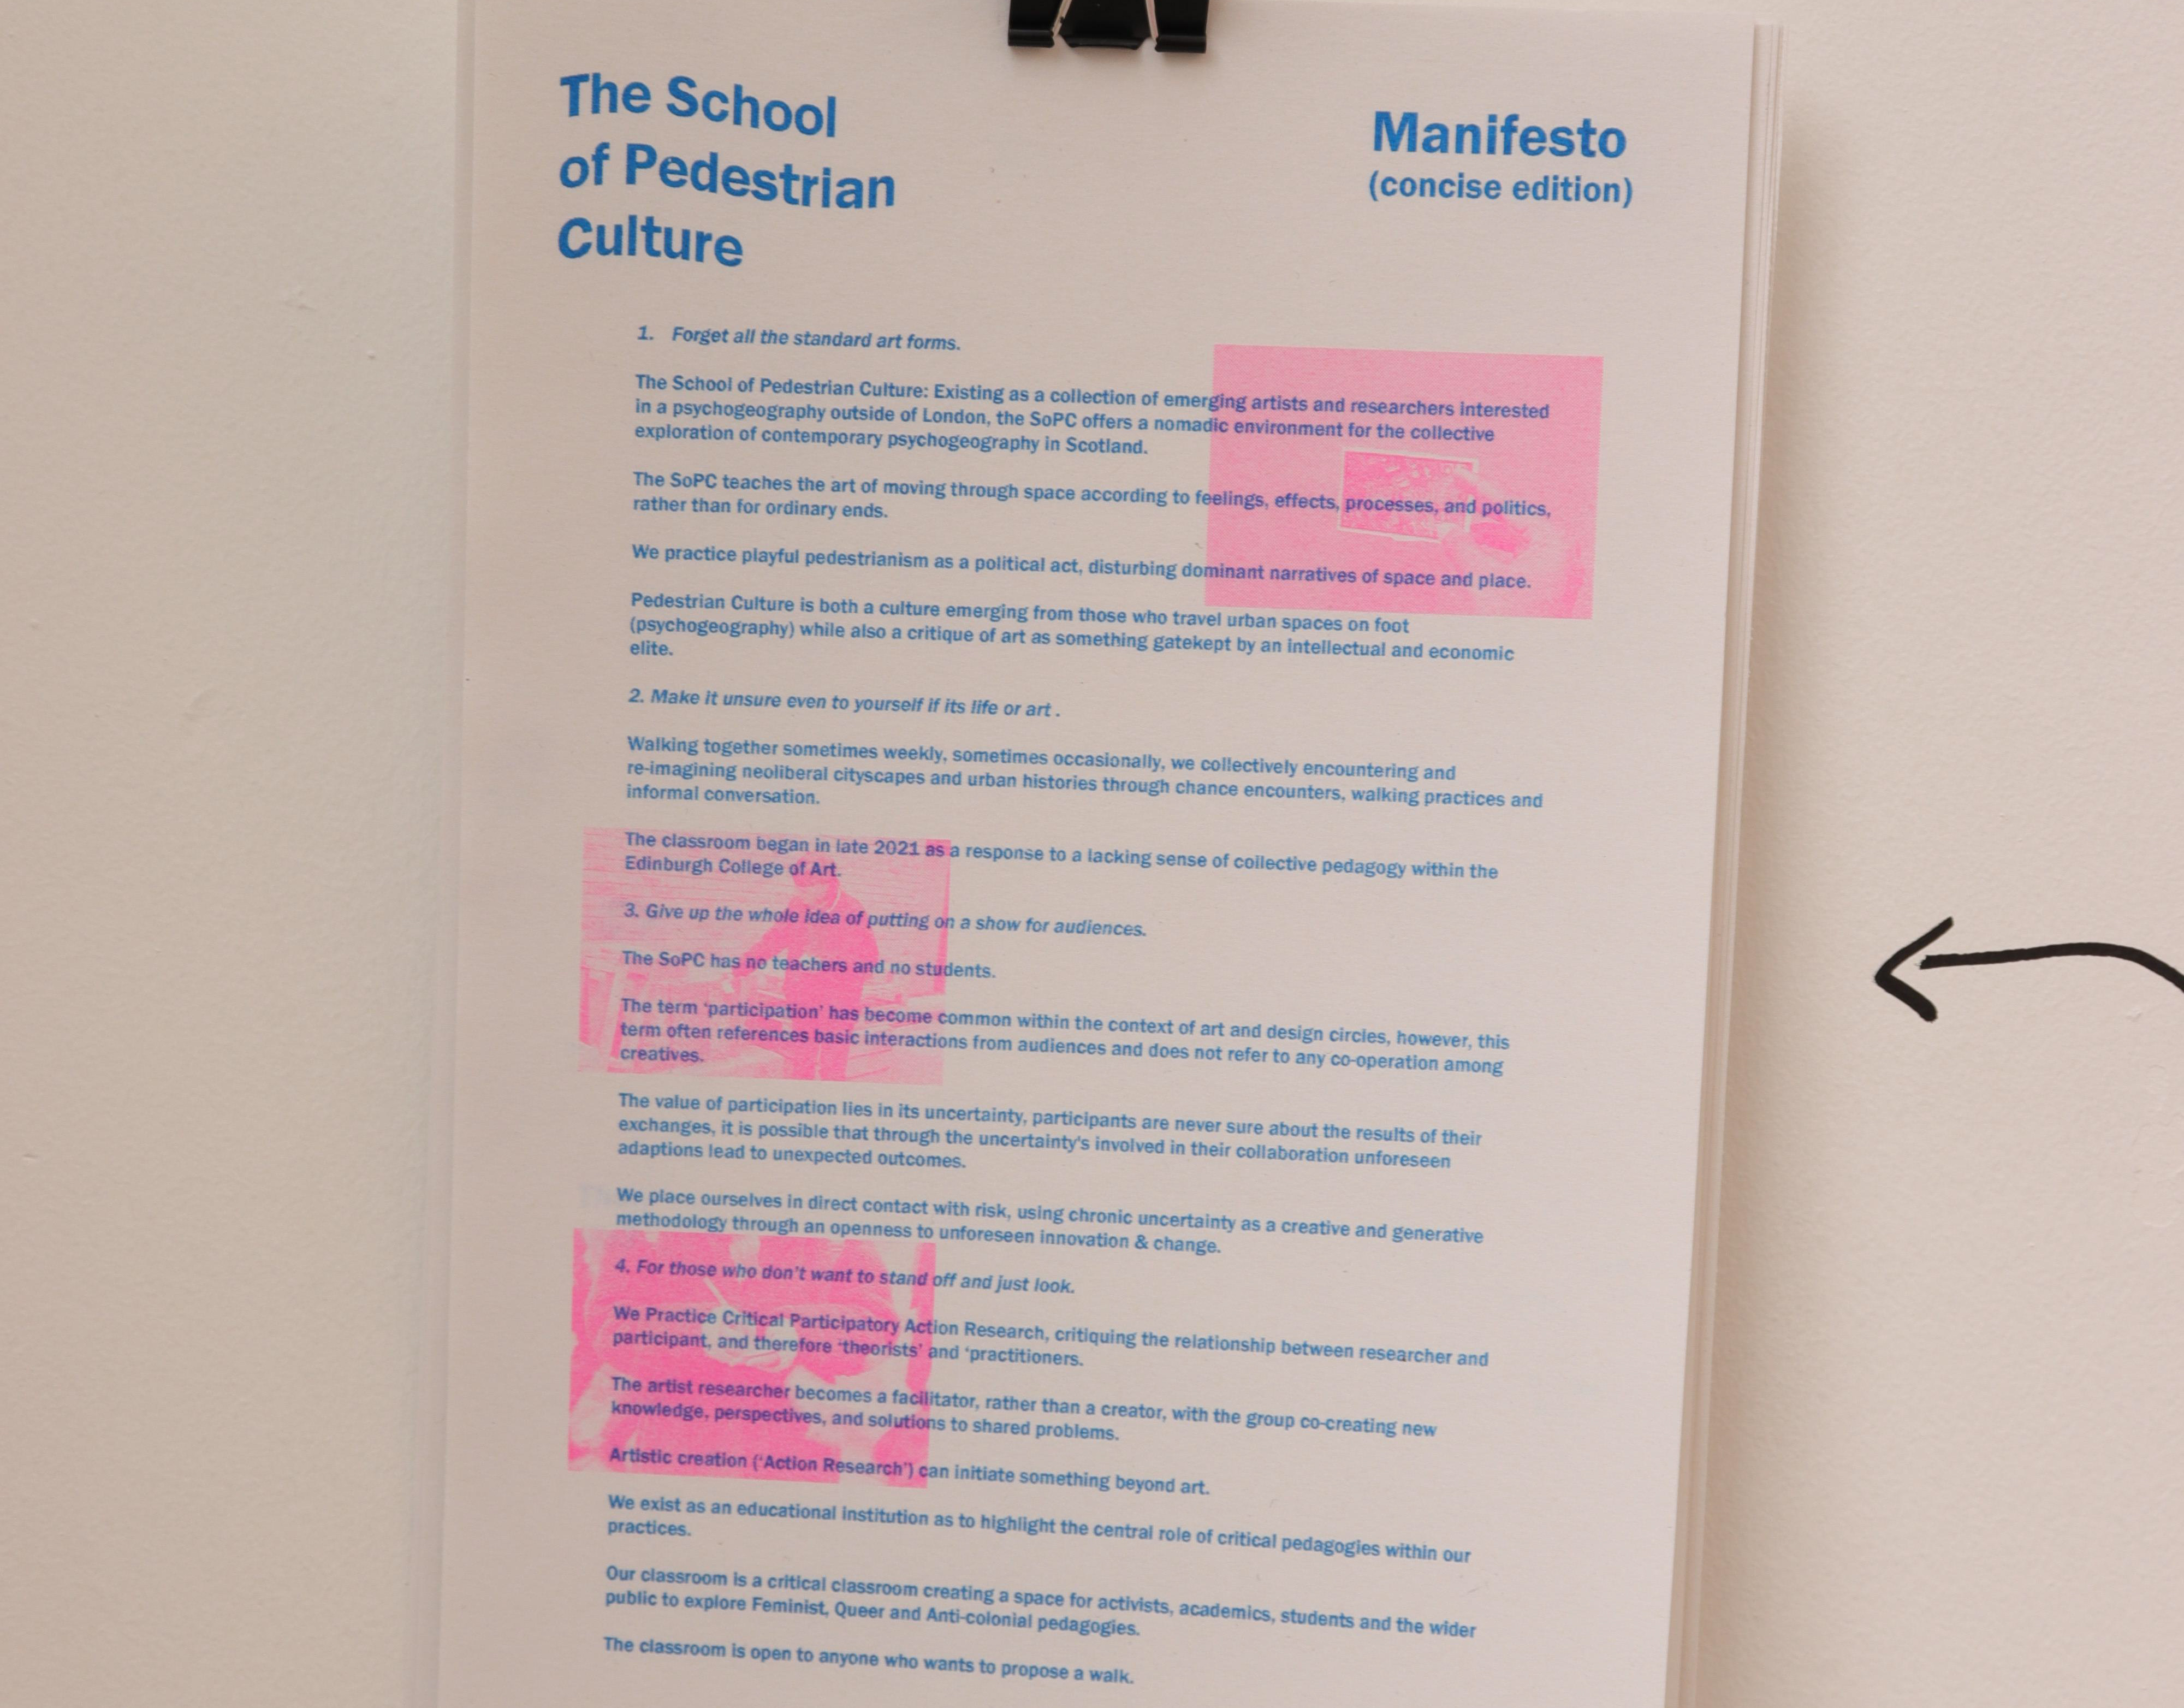 The School
of Pedestrian
Culture
Manifesto
(concise edition)
1. Forget all the standard art forms.
The School of Pedestrian Culture: Existing as a collection of emerging artists and researchers interested
in a psychogeography outside of London, the SoPC offers a nomadic environment for the collective
exploration of contemporary psychogeography in Scotland.
The SoPC teaches the art of moving through space according to feelings, effects, processes, and politics,
rather than for ordinary ends.
We practice playful pedestrianism as a political act, disturbing dominant narratives of space and place.
Pedestrian Culture is both a culture emerging from those who travel urban spaces on foot
(psychogeography) while also a critique of art as something gatekept by an intellectual and economic
elite.
2. Make it unsure even to yourself if its life or art .
Walking together sometimes weekly, sometimes occasionally, we collectively encountering and
re-imagining neoliberal cityscapes and urban histories through chance encounters, walking practices and
informal conversation.
The classroom began in late 2021 as a response to a lacking sense of collective pedagogy within the
Edinburgh College of Art.
3. Give up the whole idea of putting on a show for audiences.
The SoPC has no teachers and no students.
The term ‘participation’ has become common within the context of art and design circles, however, this
term often references basic interactions from audiences and does not refer to any co-operation among
creatives.
The value of participation lies in its uncertainty, participants are never sure about the results of their
exchanges, it is possible that through the uncertainty's involved in their collaboration unforeseen
adaptions lead to unexpected outcomes.
We place ourselves in direct contact with risk, using chronic uncertainty as a creative and generative
methodology through an openness to unforeseen innovation & change.
4. For those who don’t want to stand off and just look.
We Practice Critical Participatory Action Research, critiquing the relationship between researcher and
participant, and therefore ‘theorists’ and ‘practitioners.
The artist researcher becomes a facilitator, rather than a creator, with the group co-creating new
knowledge, perspectives, and solutions to shared problems.
Artistic creation (‘Action Research’) can initiate something beyond art.
We exist as an educational institution as to highlight the central role of critical pedagogies within our
practices.
Our classroom is a critical classroom creating a space for activists, academics, students and the wider
public to explore Feminist, Queer and Anti-colonial pedagogies.
The classroom is open to anyone who wants to propose a walk.